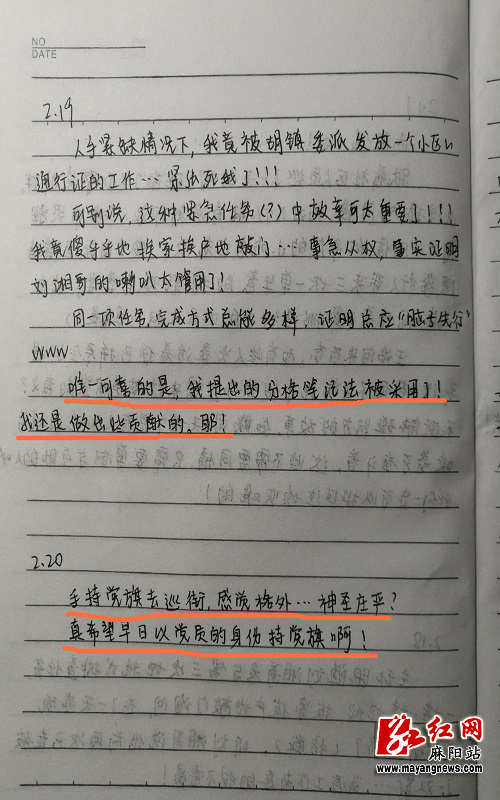 NO
DATE
2.19
人手紧缺情况下,我竟被胡镇委派发放一个小区
通行证的工作…紧张死我了!!!
可别说,这种紧急任务(?)中效率可太重要了!!!!
我竟傻乎乎地挨家挨户地敲门…事急从权,事实证明
刘湘哥的喇叭太管用了!
同一项任务,完成方式总能多样,证明总应“脑子先行”
www
唯一可喜的是,我提出的分楼登记法被采用了!
我还是做出些贡献的,耶!
2.20
手持党旗去巡街,感觉格外…神圣庄严?
真希望早日以党员的身份持党旗啊!
红红网
麻阳站
www.mayangnews.com